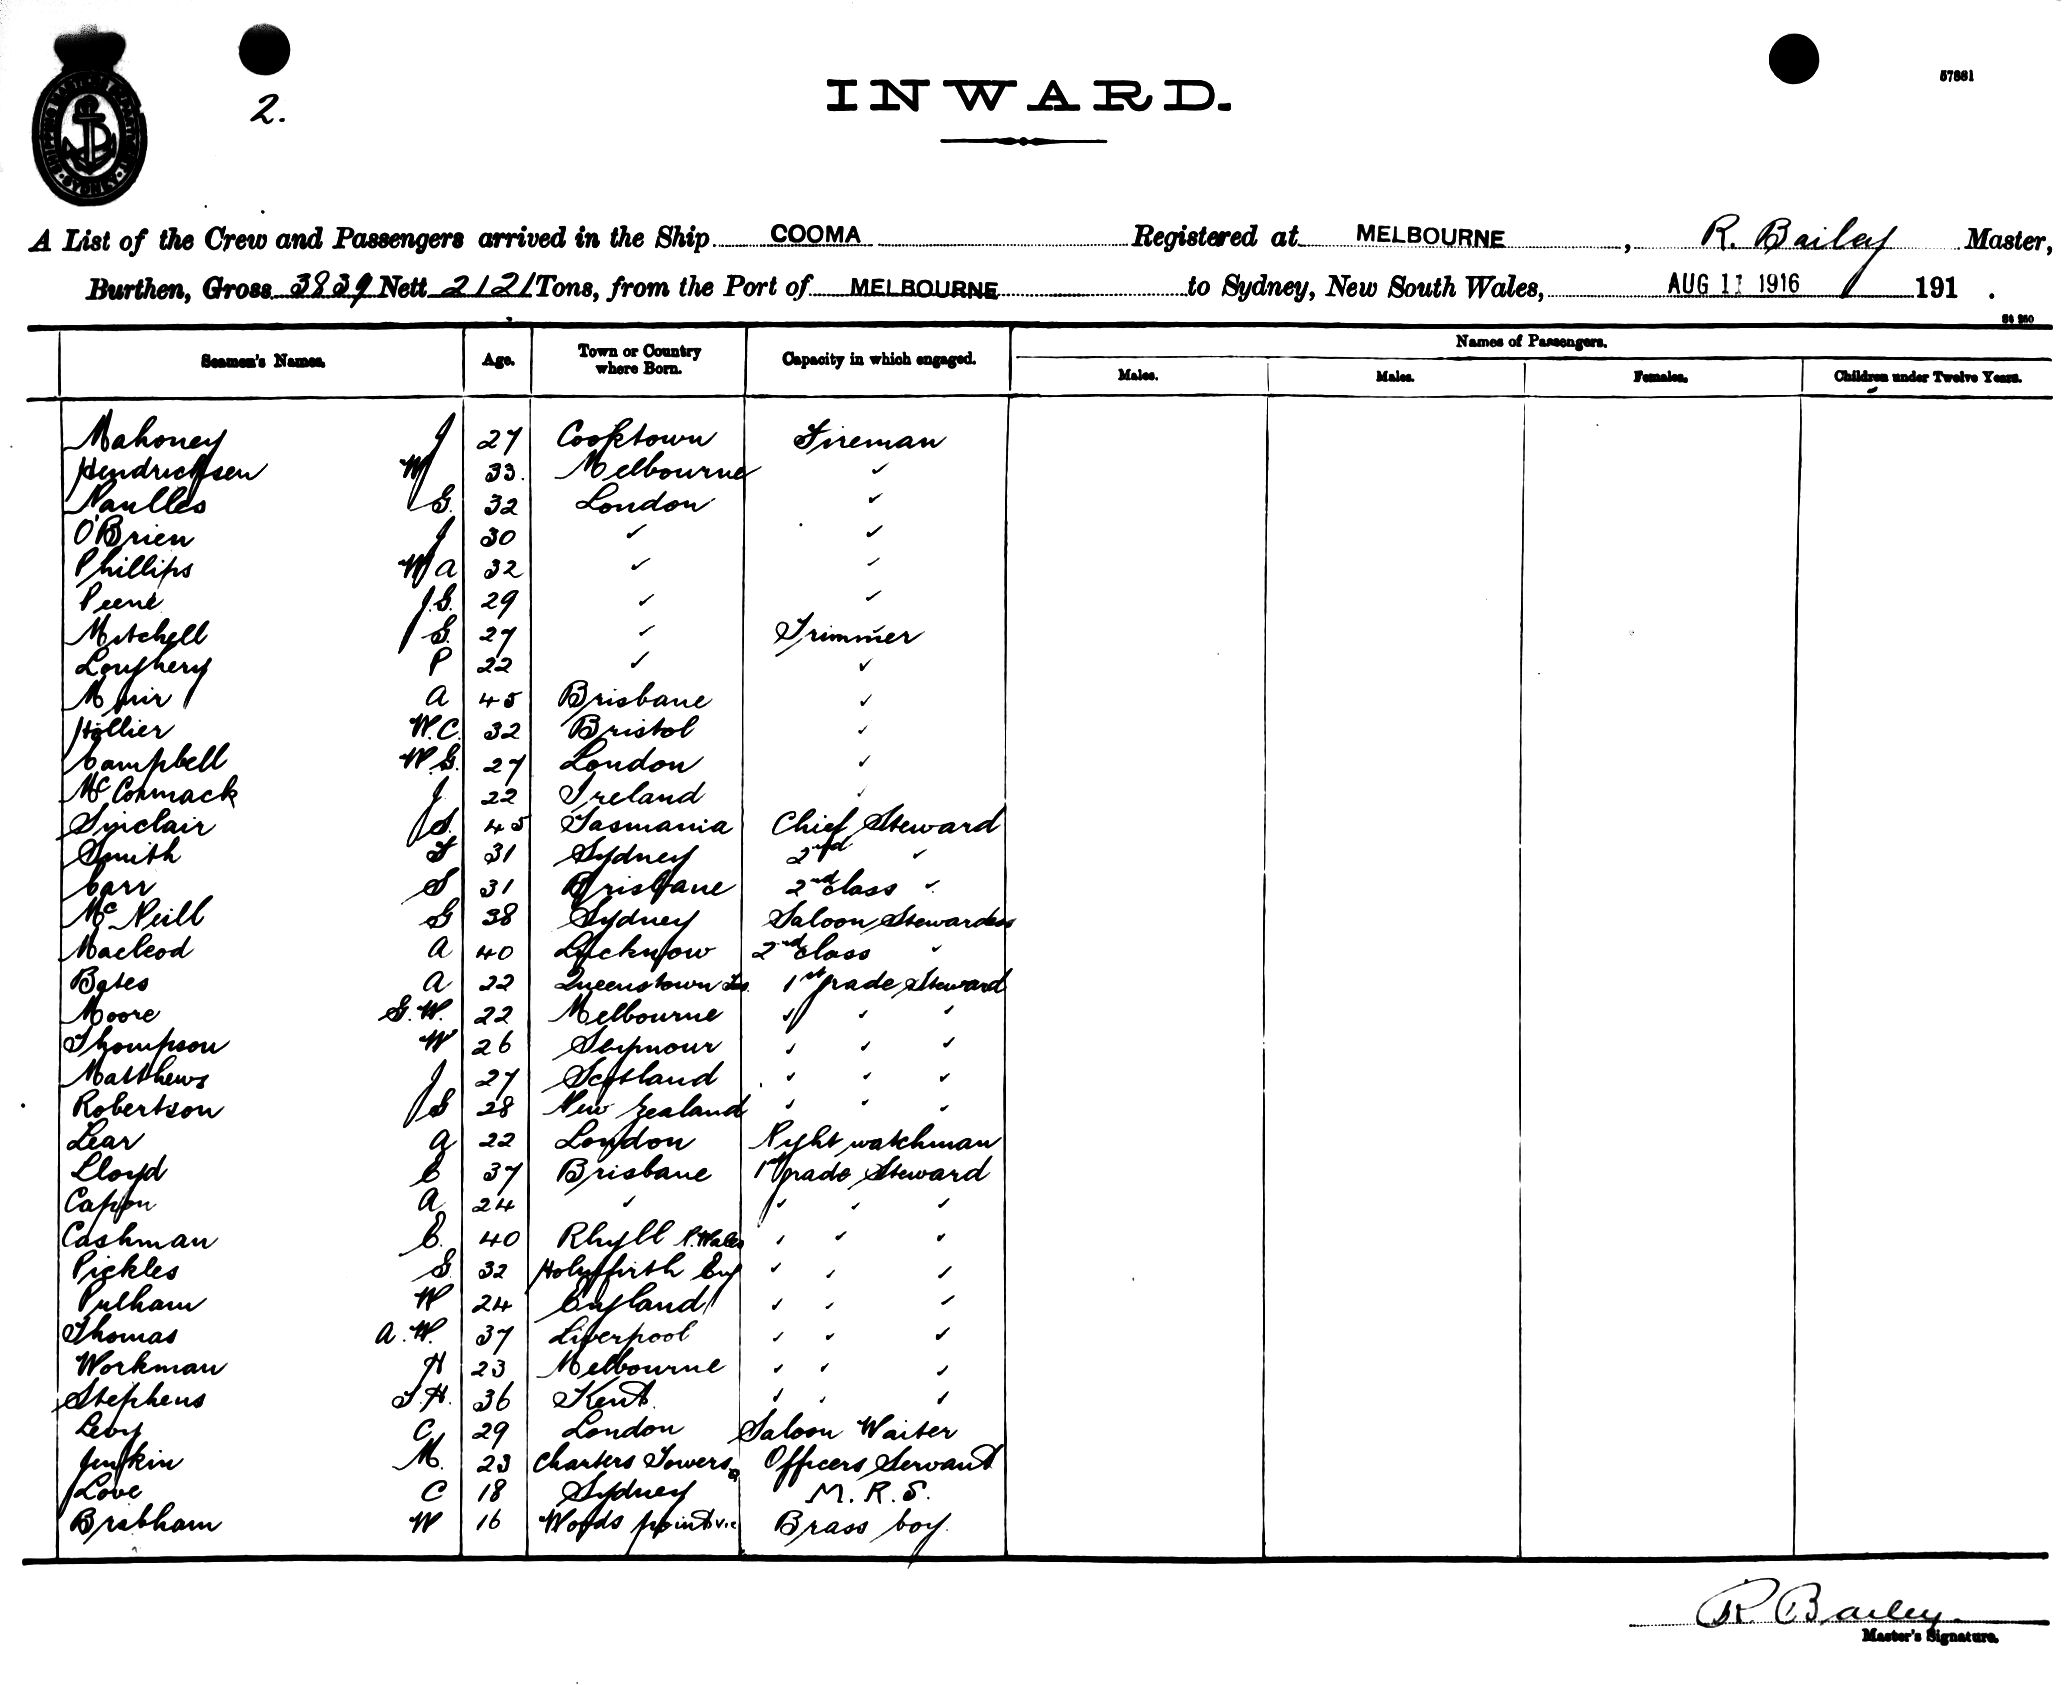 2.
57881
INWARD.
A List of the Crew and Passengers arrived in the Ship COOMA Registered at MELBOURNE, R. Bailey Master,
Burthen, Gross 3839 Nett 2121 Tons, from the Port of MELBOURNE to Sydney, New South Wales, AUG 11 1916 191 .
Seamen's Names. Age. Town or Country where Born. Capacity in which engaged. Names of Passengers.
Males. Males. Females. Children under Twelve Years.
Mahoney J 27 Cooktown Fireman
Hendricksen W 33. Melbourne ✓
Naulles G. 32 London ✓
O'Brien J 30 ✓ ✓
Phillips W A 32 ✓ ✓
Peene J.G. 29 ✓ ✓
Mitchell G. 27 ✓ Trimmer
Loughery P 22 ✓ ✓
Muir A 45 Brisbane ✓
Hollier W.C. 32 Bristol ✓
Campbell W.G. 27 London ✓
McCormack J. 22 Ireland ✓
Sinclair J S. 45 Tasmania Chief Steward
Smith F 31 Sydney 2nd ✓
Carr S 31 Brisbane 2nd class ✓
McNeill G 38 Sydney Saloon Stewardess
Macleod A 40 Lucknow 2nd class ✓
Bates A 22 Queenstown Tas. 1st grade Steward
Moore G.W. 22 Melbourne ✓ ✓ ✓
Thompson W 26 Seymour ✓ ✓ ✓
Matthews J 27 Scotland ✓ ✓ ✓
Robertson J G 28 New Zealand ✓ ✓ ✓
Lear A 22 London Night watchman
Lloyd E 37 Brisbane 1st grade Steward
Capon A 24 ✓ ✓ ✓ ✓
Cashman E. 40 Rhyll N. Wales ✓ ✓ ✓
Pickles G 32 Holmfirth Eng ✓ ✓ ✓
Pulham W 24 England ✓ ✓ ✓
Thomas A.W. 37 Liverpool ✓ ✓ ✓
Workman H 23 Melbourne ✓ ✓ ✓
Stephens T.H. 36 Kent ✓ ✓ ✓
Levy C. 29 London Saloon Waiter
Jenkin M. 23 Charters Towers Q Officers Servant
Love C 18 Sydney M.R.S.
Brabham W 16 Woods point Vic Brass boy.
R. Bailey.
Master's Signature.